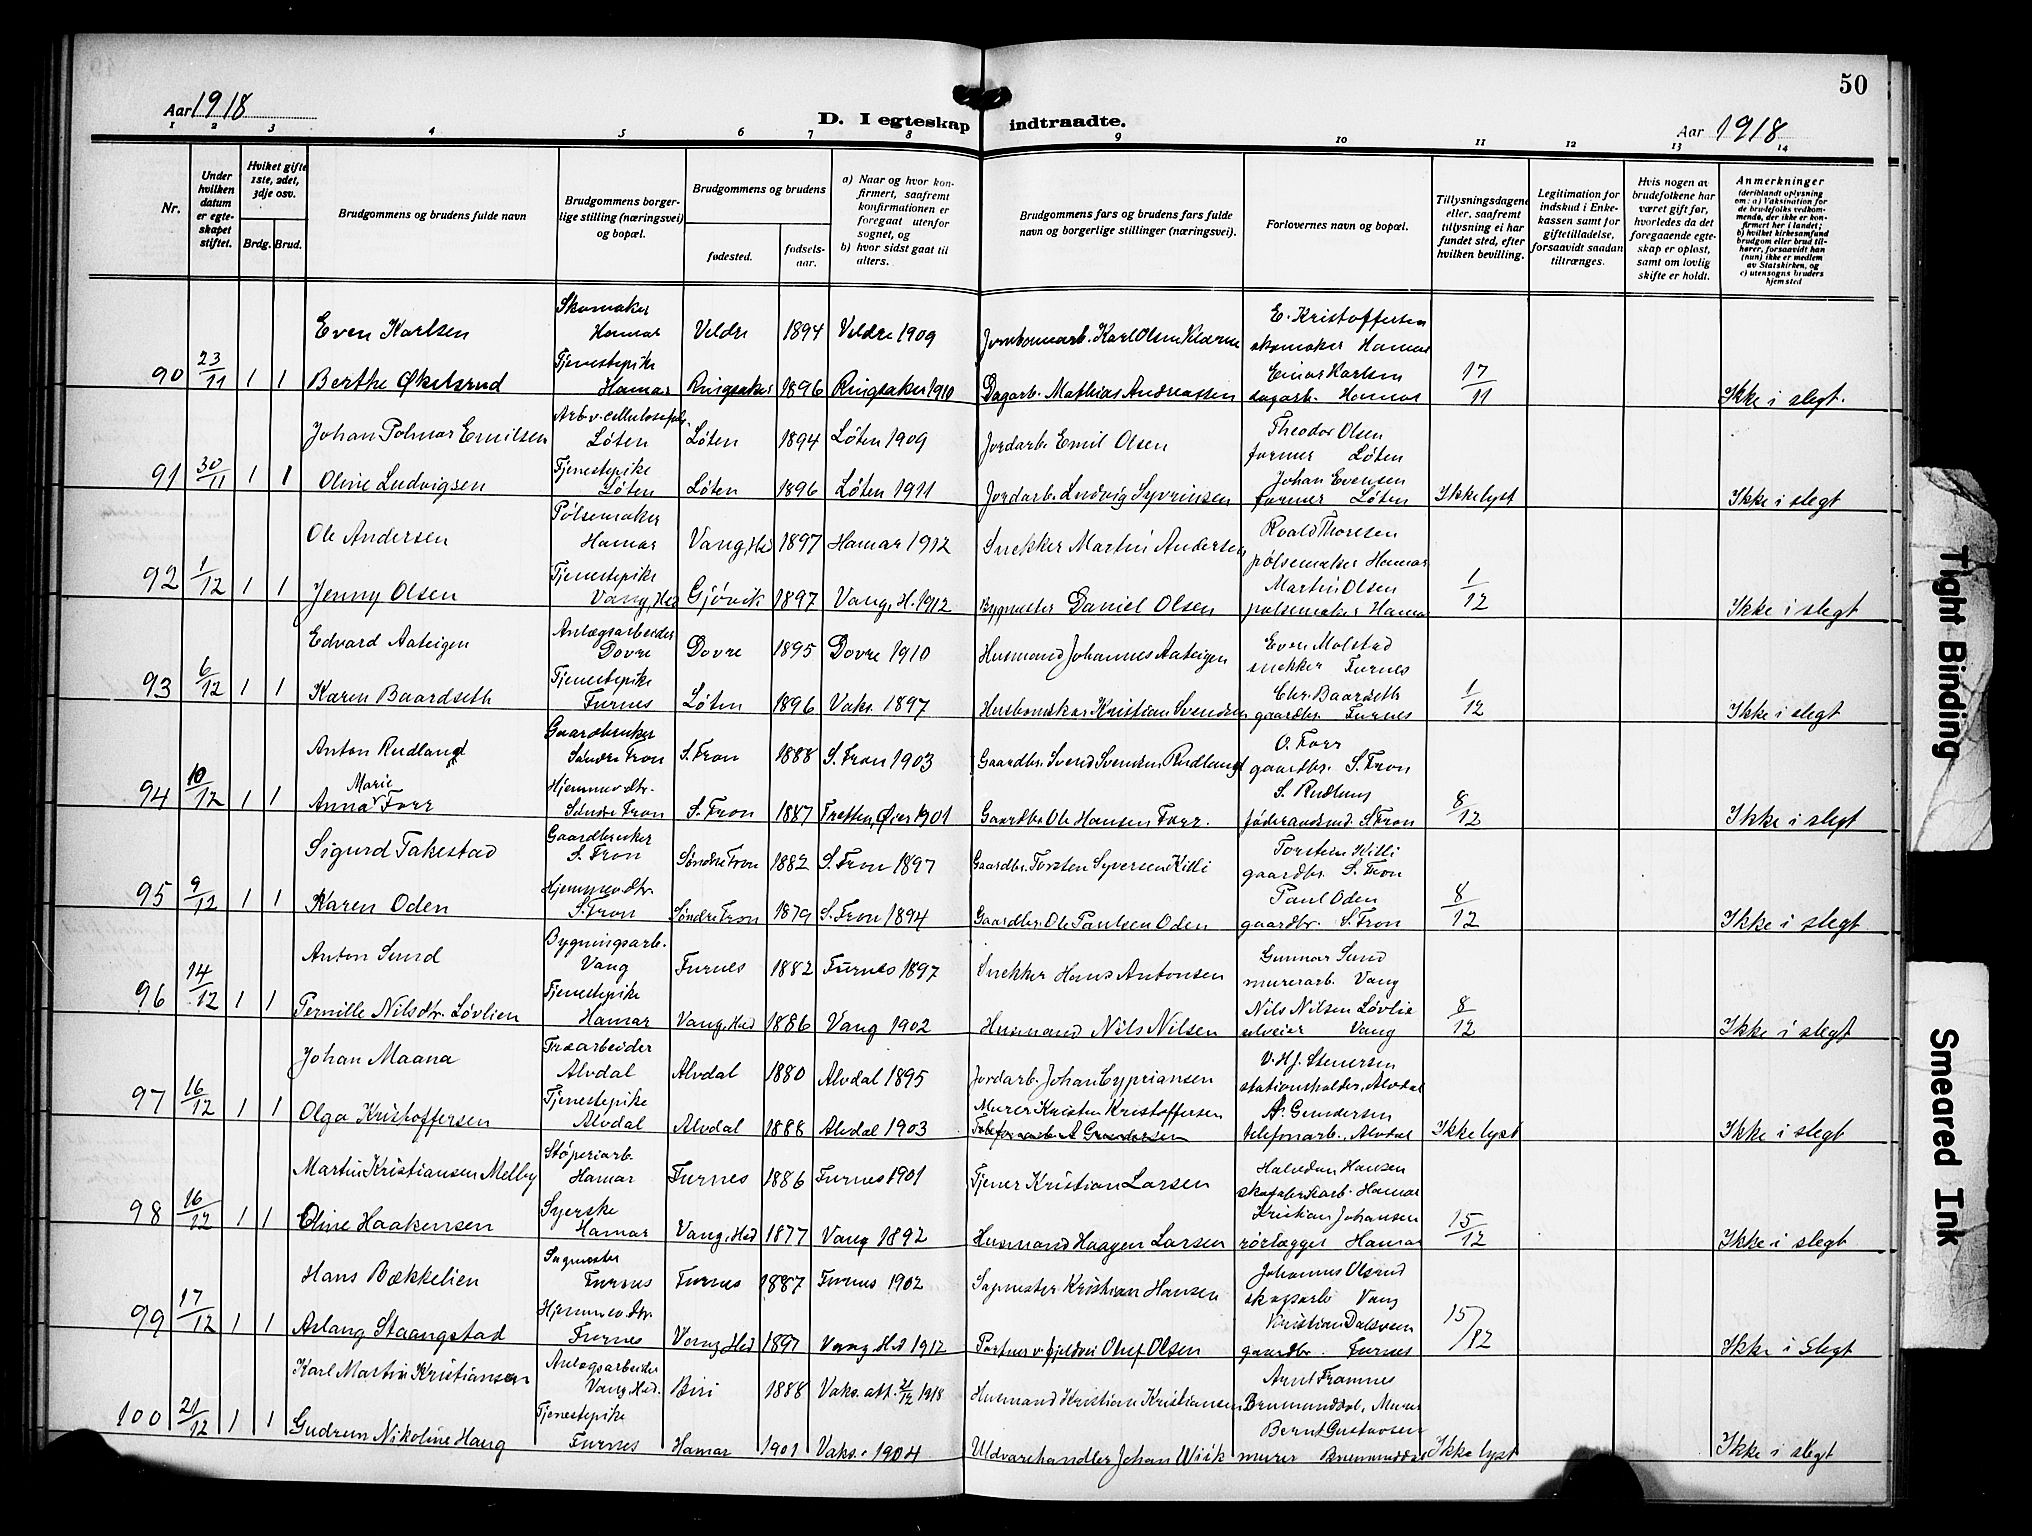 50
Aar 1918
D. I egteskap indtraadte.
Aar 1918
1 2 3 4 5 6 7 8 9 10 11 12 13 14
Nr.
Under hvilken datum er egteskapet stiftet.
Hviket gifte 1ste, 2det, 3dje osv.
Brdg. Brud.
Brudgommens og brudens fulde navn
Brudgommens borgerlige stilling (næringsvei) og bopæl.
Brudgommens og brudens
fødested.
fødselsaar.
a) Naar og hvor konfirmert, saafremt konfirmationen er foregaat utenfor sognet, og
b) hvor sidst gaat til alters.
Brudgommens fars og brudens fars fulde navn og borgerlige stillinger (næringsvei).
Forlovernes navn og bopæl.
Tillysningsdagene eller, saafremt tillysning ei har fundet sted, efter hvilken bevilling.
Legitimation for indskud i Enkekassen samt for giftetilladelse, forsaavidt saadan tiltrænges.
Hvis nogen av brudefolkene har været gift før, hvorledes da det foregaaende egteskap er opløst, samt om lovlig skifte er holdt.
Anmerkninger
(deriblandt oplysning om: a) Vaksination for de brudefolks vedkommende, der ikke er konfirmert her i landet; b) hvilket kirkesamfund brudgom eller brud tilhører, forsaavidt han (hun) ikke er medlem av Statskirken, og c) utensogns bruders hjemsted
Even Karlsen Skomaker Hamar Veldre 1894 Veldre 1909 Karl Olsen E. Kristoffersen skomaker Hamar
90 23/11 1 1 Berthe Økelsrud Tjenestepike Hamar Ringsaker 1896 Ringsaker 1910 Dagarb. Mathias Andreassen Einar Karlsen dagarb. Hamar 17/11 Ikke i slegt.
Johan Polmar Emilsen Arb. v. cellulosefabr. Løten Løten 1894 Løten 1909 Jordarb. Emil Olsen Theodor Olsen former Løten
91 30/11 1 1 Oline Ludvigsen Tjenestepike Løten Løten 1896 Løten 1911 Jordarb. Ludvig Syvrinsen Johan Evensen former Løten Ikke lyst Ikke i slegt
Ole Andersen Pølsemaker Hamar Vang, Hed 1897 Hamar 1912 Snekker Martin Andersen Roald Thoresen pølsemaker Hamar
92 1/12 1 1 Jenny Olsen Tjenestepike Vang, Hed Gjøvik 1897 Vang, H. 1912 Bygmester Daniel Olsen Martin Olsen pølsemaker Hamar 1/12 Ikke i slegt
Edvard Aateigen Anlægsarbeider Dovre Dovre 1895 Dovre 1910 Husmand Johannes Aateigen Even Molstad snekker Furnes
93 6/12 1 1 Karen Baardseth Tjenestepike Furnes Løten 1896 Vaks. 1897 Kristian Svendsen Chr. Baardseth gaardbr. Furnes 1/12 Ikke i slegt
Anton Rudland Gaardbruker Søndre Fron S. Fron 1888 S. Fron 1903 Gaardbr. Svend Svendsen Rudland O. Forr gaardbr. S. Fron
94 10/12 1 1 Anna Marie Forr Hjemmev. dtr. Søndre Fron S. Fron 1887 Fretten, Øier 1901 Gaardbr. Ole Hansen Forr. S. Rudlung føderaadsmd. S. Fron 8/12 Ikke i slegt
Sigurd Takestad Gaardbruker S. Fron Søndre Fron 1882 S. Fron 1897 Gaardbr. Torsten Syversen Killi Torstein Killi gaardbr. S. Fron
95 9/12 1 1 Karen Oden Hjemmev. dtr. S. Fron Søndre Fron 1879 S. Fron 1894 Gaardbr. Ole Paulsen Oden Paul Oden gaardbr. S. Fron 8/12 Ikke i slegt
Anton Sund Bygningsarb. Vang Furnes 1882 Furnes 1897 Snekker Hans Antonsen Gunnar Sund murerarb. Vang
96 14/12 1 1 Pernille Nilsdtr. Løvlien Tjenestepike Hamar Vang, Hed 1886 Vang 1902 Husmand Nils Nilsen Nils Nilsen Løvlie selveier Vang 8/12 Ikke i slegt
Johan Maana Træarbeider Alvdal Alvdal 1880 Alvdal 1895 Jordarb. Johan Cypriansen V. Hj. Stenersen stationsholder, Alvdal
97 16/12 1 1 Olga Kristoffersen Tjenestepike Alvdal Alvdal 1888 Alvdal 1903 Murer Kristen Kristoffersen Telefonarb. A. Gundersen A. Gundersen telefonarb., Alvdal Ikke lyst Ikke i slegt
Martin Kristiansen Melby Støperiarb. Hamar Furnes 1886 Furnes 1901 Tjener Kristian Larsen Halvdan Hansen skofabrikarb. Hamar
98 16/12 1 1 Oline Haakensen Syerske Hamar Vang, Hed 1877 Vang 1892 Husmand Haagen Larsen Kristian Johansen rørlægger Hamar 15/12 Ikke i slegt
Hans Bækkelien Sagmester Furnes Furnes 1887 Furnes 1902 Sagmester Kristian Hansen Johannes Olsrud skogsarb Vang
99 17/12 1 1 Aslaug Staangstad Hjemmev. dtr. Furnes Vang, Hed 1897 Vang, Hed 1912 Portner v. fjeldvei Oluf Olsen Kristian Dalsveen gaardbr. Furnes 15/12 Ikke i Slegt
Karl Martin Kristiansen Anlægsarbeider Vang, Hed. Biri 1888 Vaks. att. 21/12 1918 Husmand Kristian Kristiansen Arnt Framnes Brumunddal, Murer
100 21/12 1 1 Gudrun Nikoline Haug Tjenestepike Furnes Hamar 1901 Vaks. 1904 Uldvarehandler Johan Wiik Bernt Gustavsen murer Brumunddal Ikke lyst Ikke i slegt
Tight Binding
Smeared Ink